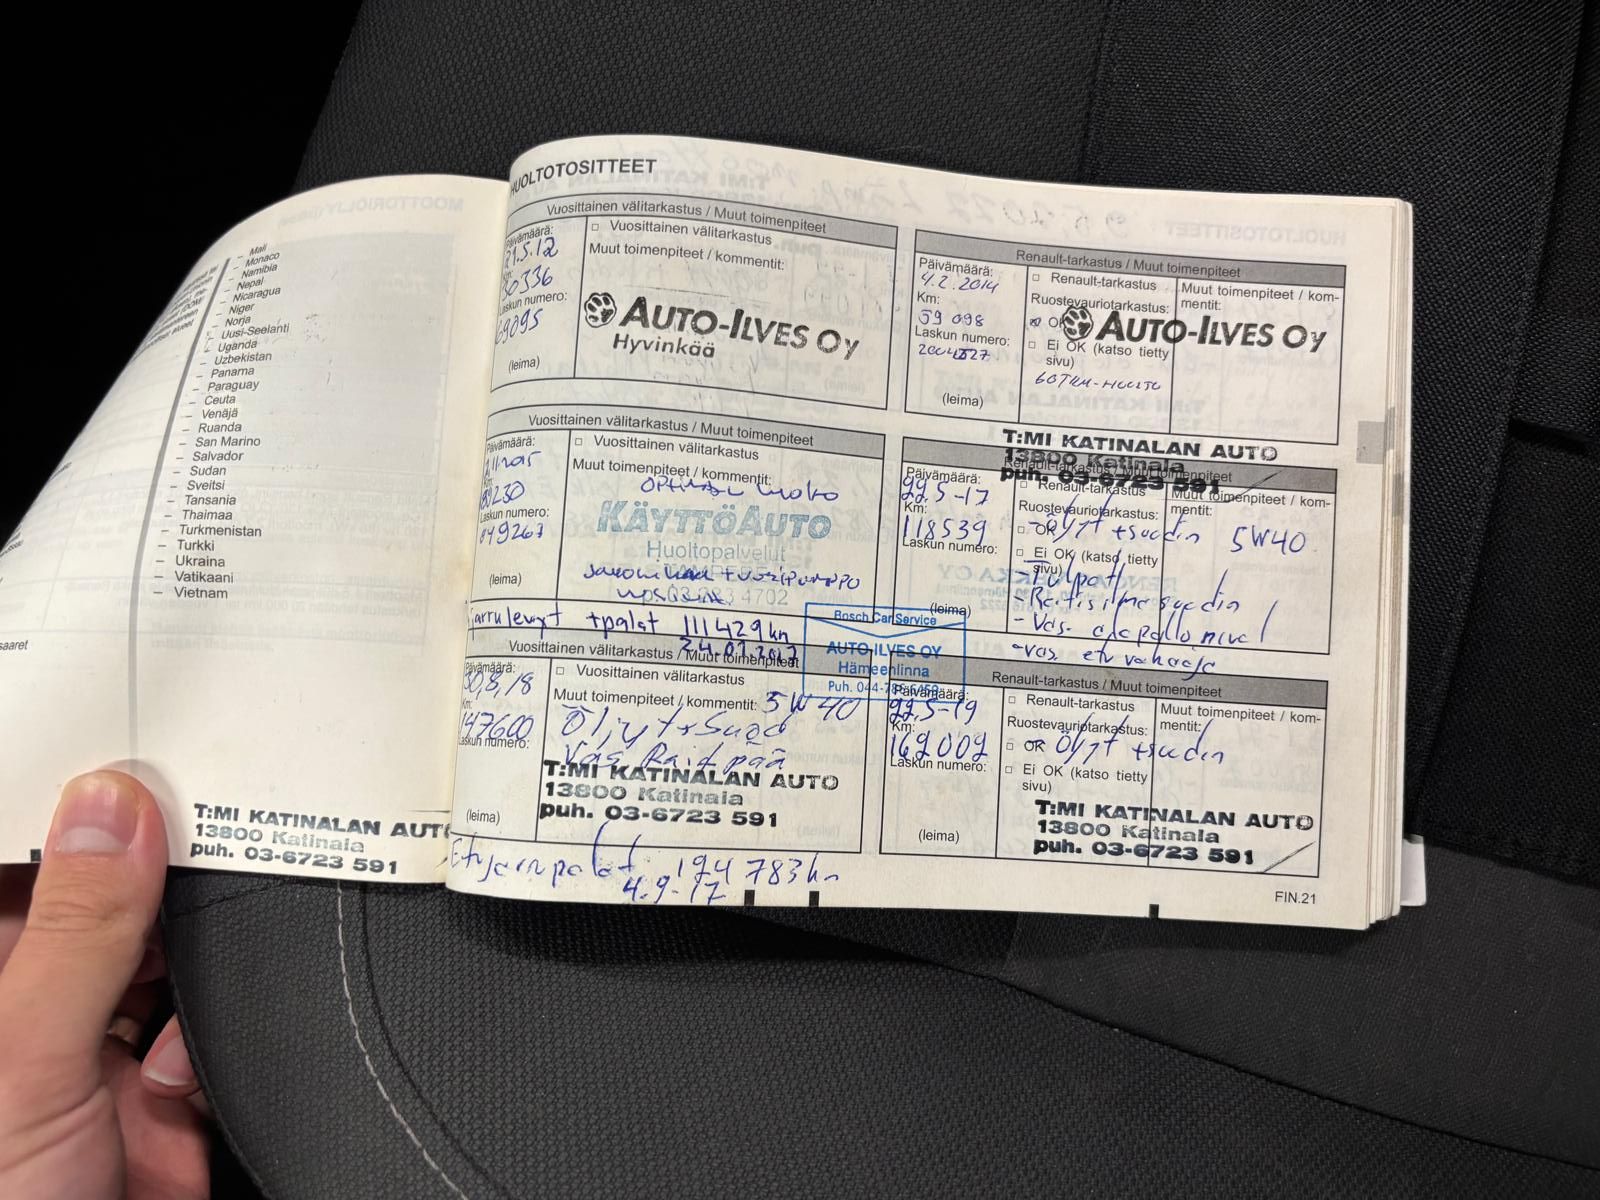 MOOTTORIÖLJY
– Mali
– Monaco
– Namibia
– Nepal
– Nicaragua
– Niger
– Norja
– Uusi-Seelanti
– Uganda
– Uzbekistan
– Panama
– Paraguay
– Ceuta
– Venäjä
– Ruanda
– San Marino
– Salvador
– Sudan
– Sveitsi
– Tansania
– Thaimaa
– Turkmenistan
– Turkki
– Ukraina
– Vatikaani
– Vietnam
saaret
T:MI KATINALAN AUT
13800 Katinala
puh. 03-6723 591
HUOLTOTOSITTEET
Vuosittainen välitarkastus / Muut toimenpiteet
Päivämäärä:
21.5.12
Km:
30336
Laskun numero:
69095
(leima)
□ Vuosittainen välitarkastus
Muut toimenpiteet / kommentit:
AUTO-ILVES OY
Hyvinkää
Renault-tarkastus / Muut toimenpiteet
Päivämäärä:
4.2.2014
Km:
59 098
Laskun numero:
2004527
(leima)
□ Renault-tarkastus
Ruostevauriotarkastus:
OK
□ Ei OK (katso tietty
sivu)
60TKM-HUOLTO
Muut toimenpiteet / kom-
mentit:
AUTO-ILVES OY
Vuosittainen välitarkastus / Muut toimenpiteet
Päivämäärä:
Km:
Laskun numero:
049267
(leima)
□ Vuosittainen välitarkastus
Muut toimenpiteet / kommentit:
KÄYTTÖAUTO
Huoltopalvelut
4702
T:MI KATINALAN AUTO
13800 Katinala
puh. 03-6723 591
Renault-tarkastus / Muut toimenpiteet
Päivämäärä:
22.5-17
Km:
118539
Laskun numero:
(leima)
□ Renault-tarkastus
Ruostevauriotarkastus:
□ OK
□ Ei OK (katso tietty
sivu)
Muut toimenpiteet / kom-
mentit:
-öljyt +suodin 5W40
-Tulpat
-Raitisilmasuodin
-Vas. alapallonivel
-vas. etu vakaaja
jarrulevyt +palat 111429km
24.01.2017
Bosch Car Service
AUTO-ILVES OY
Hämeenlinna
Puh. 044-
Vuosittainen välitarkastus / Muut toimenpiteet
Päivämäärä:
30,8,18
Km:
147600
Laskun numero:
(leima)
□ Vuosittainen välitarkastus
Muut toimenpiteet / kommentit: 5W40
Öljyt+Suod
Vas Rait pää
T:MI KATINALAN AUTO
13800 Katinala
puh. 03-6723 591
Renault-tarkastus / Muut toimenpiteet
Päivämäärä:
22.5-19
Km:
162002
Laskun numero:
(leima)
□ Renault-tarkastus
Ruostevauriotarkastus:
□ OK Öljyt +suodin
□ Ei OK (katso tietty
sivu)
Muut toimenpiteet / kom-
mentit:
T:MI KATINALAN AUTO
13800 Katinala
puh. 03-6723 591
Etujarrupalat 124783km
4.9-17
FIN.21